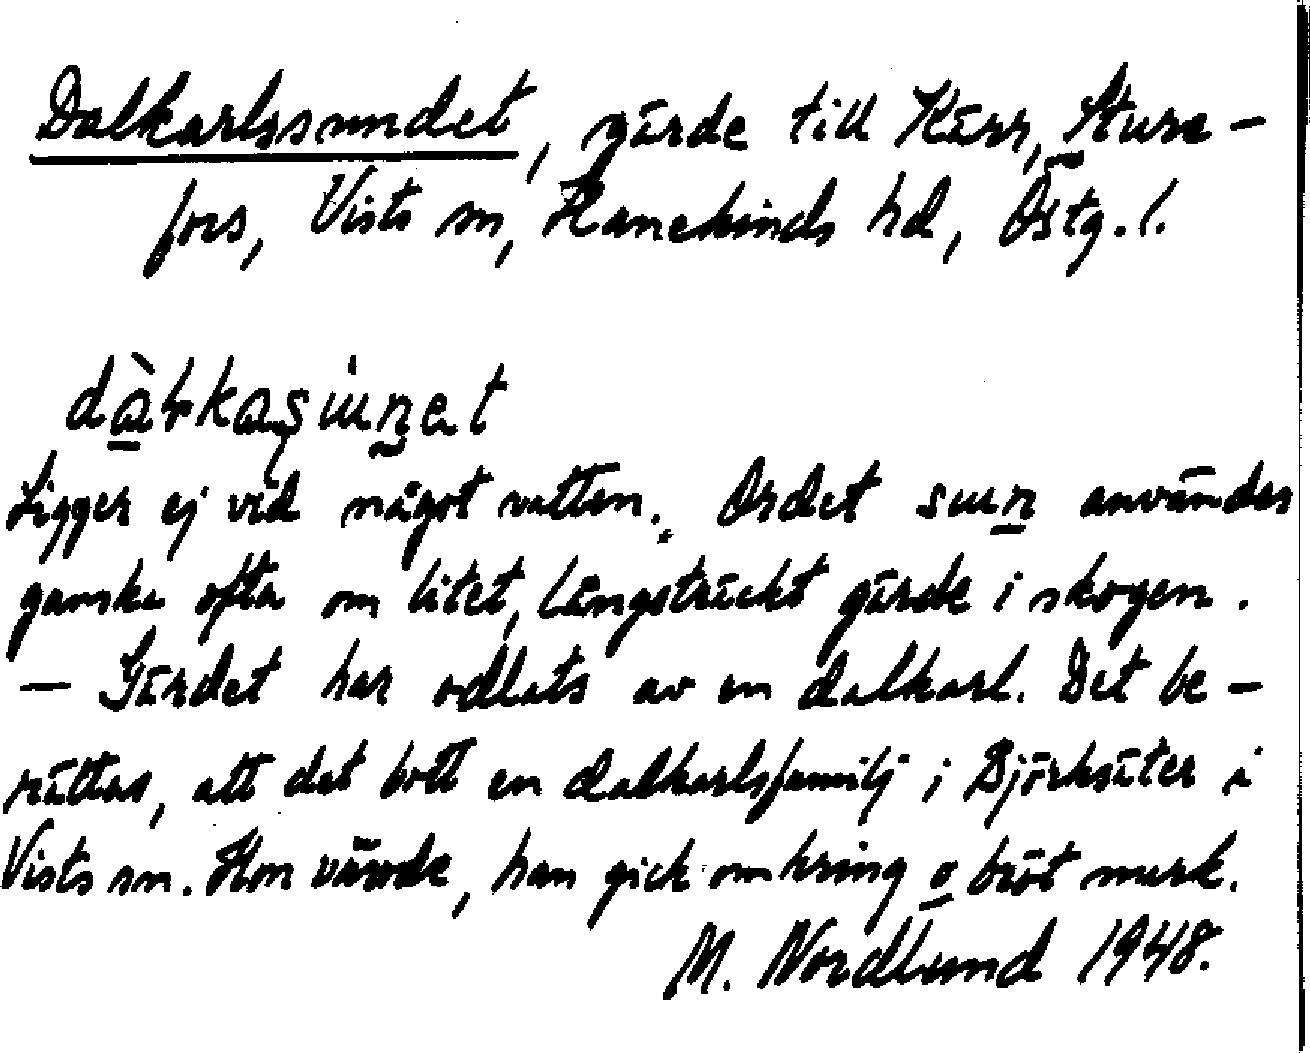 Dalkarlssundet, gärde till Kärr, Sture-
fors, Vists sn, Hanekinds hd, Östg. l.
Ligger ej vid något vatten. Ordet sun användes
ganska ofta om litet, långsträckt gärde i skogen.
— Gärdet har odlats av en dalkarl. Det be-
rättas, att det bott en dalkarlsfamilj i Björksäter i
Vists sn. Hon vävde, han gick omkring o bröt mark.
M. Nordlund 1948.